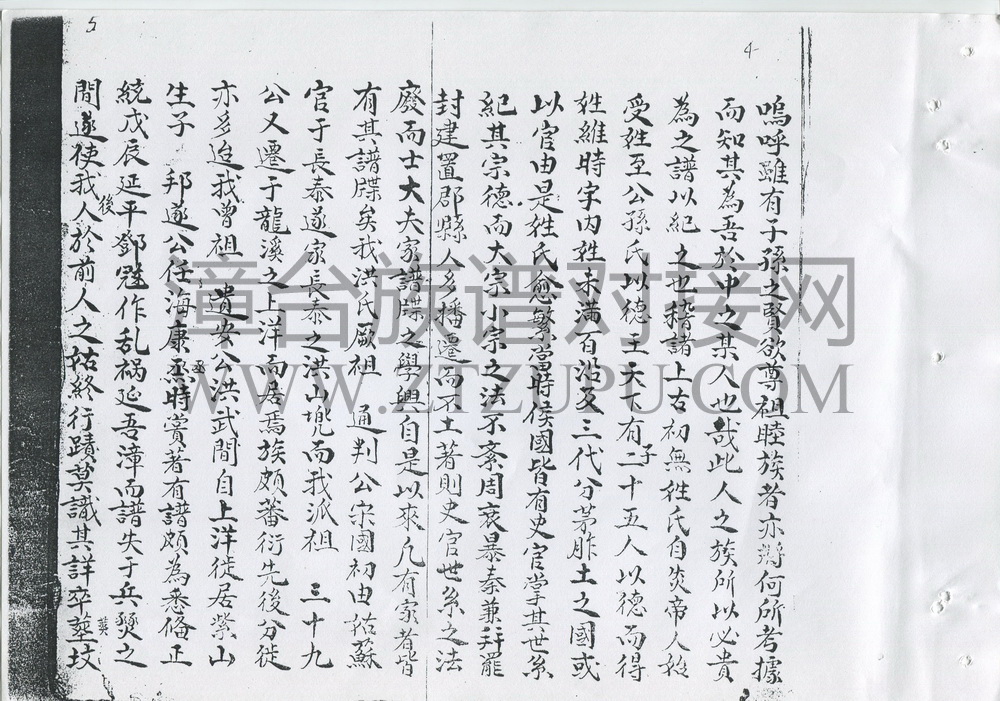 4
嗚呼雖有子孫之賢欲尊祖睦族者亦將何所考據
而知其為吾於中之某人也哉此人之族所以必貴
為之譜以紀之也稽諸上古初無姓氏自炎帝人始
受姓至公孫氏以德王天下有子二十五人以德而得
姓維時字內姓未滿百沿及三代分茅胙土之國或
以官由是姓氏愈繁當時侯國皆有史官掌其世系
紀其宗德而大宗小宗之法不紊周衰暴秦兼并罷
封建置郡縣人多播遷而不土著則史官世系之法
5
廢而士大夫家譜牒之學興自是以來凡有家者皆
有其譜牒矣我洪氏厥祖 通判公宋國初由姑蘇
官于長泰遂家長泰之洪山兠而我派祖 三十九
公又遷于龍溪之上洋而居焉族頗蕃衍先後分徙
亦多迨我曾祖 遺安公洪武間自上洋徙居紫山
生子 邦遂公任海康丞時賞著有譜頗為悉俻正
統戊辰延平鄧魁作乱祸延吾漳而譜失于兵燹之
間遂使我後人於前人之始終行蹟莫識其詳卒葬坟
漳台族谱对接网
WWW.ZTZUPU.COM